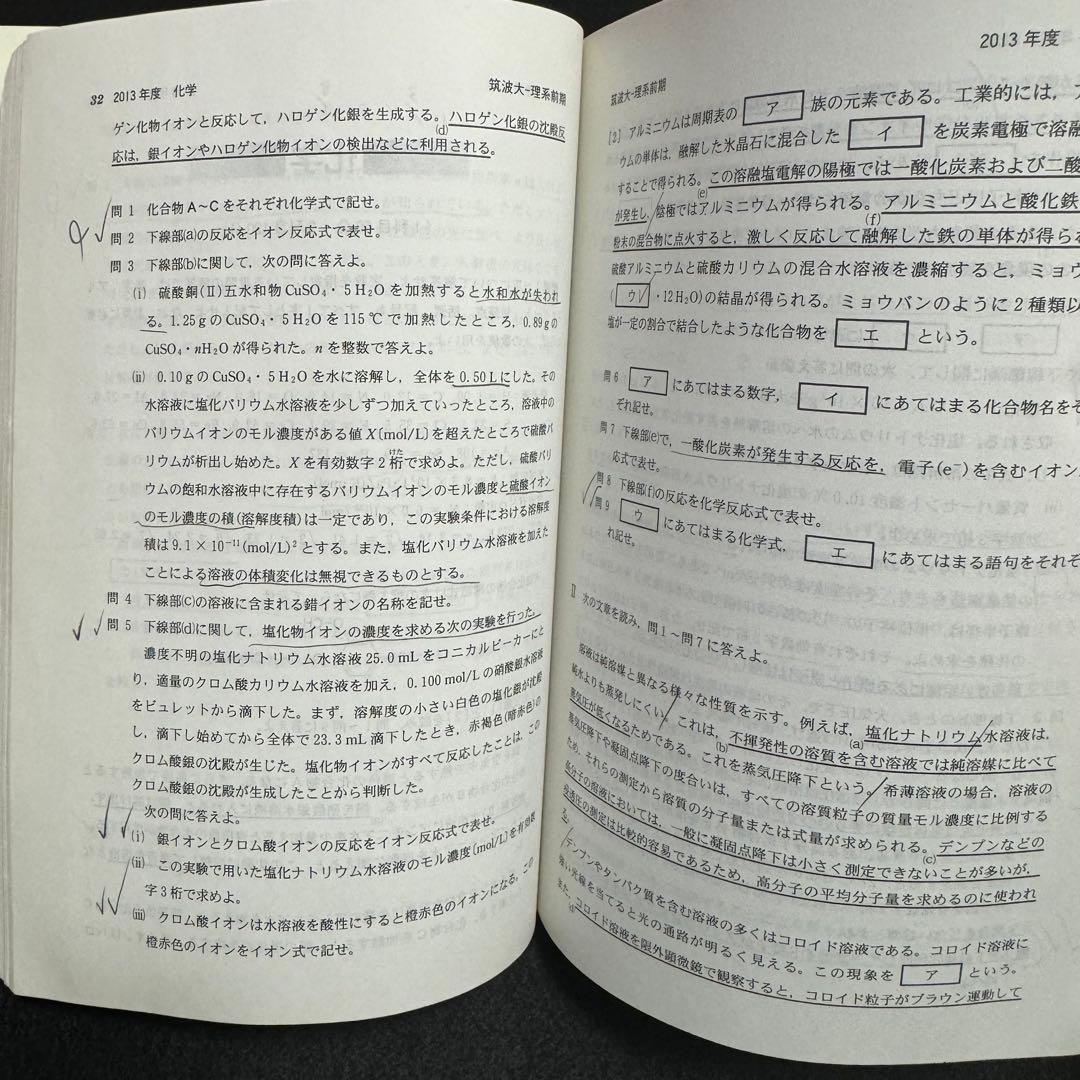 32 2013年度 化学 筑波大-理系前期
ゲン化物イオンと反応して，ハロゲン化銀を生成する。(d)ハロゲン化銀の沈殿反
応は，銀イオンやハロゲン化物イオンの検出などに利用される。
問1 化合物A～Cをそれぞれ化学式で記せ。
問2 下線部(a)の反応をイオン反応式で表せ。
問3 下線部(b)に関して，次の問に答えよ。
(i) 硫酸銅(II)五水和物CuSO₄・5H₂Oを加熱すると水和水が失われ
る。1.25gのCuSO₄・5H₂Oを115℃で加熱したところ，0.89gの
CuSO₄・nH₂Oが得られた。nを整数で答えよ。
(ii) 0.10gのCuSO₄・5H₂Oを水に溶解し，全体を0.50Lにした。その
水溶液に塩化バリウム水溶液を少しずつ加えていったところ，溶液中の
バリウムイオンのモル濃度がある値X〔mol/L〕を超えたところで硫酸バ
リウムが析出し始めた。Xを有効数字2桁で求めよ。ただし，硫酸バリ
ウムの飽和水溶液中に存在するバリウムイオンのモル濃度と硫酸イオン
のモル濃度の積(溶解度積)は一定であり，この実験条件における溶解度
積は9.1×10⁻¹¹(mol/L)²とする。また，塩化バリウム水溶液を加えた
ことによる溶液の体積変化は無視できるものとする。
問4 下線部(c)の溶液に含まれる錯イオンの名称を記せ。
問5 下線部(d)に関して，塩化物イオンの濃度を求める次の実験を行った。
濃度不明の塩化ナトリウム水溶液25.0mLをコニカルビーカーにと
り，適量のクロム酸カリウム水溶液を加え，0.100mol/Lの硝酸銀水溶液
をビュレットから滴下した。まず，溶解度の小さい白色の塩化銀が沈殿
し，滴下し始めてから全体で23.3mL滴下したとき，赤褐色(暗赤色)の
クロム酸銀の沈殿が生じた。塩化物イオンがすべて反応したことは，この
クロム酸銀の沈殿が生成したことから判断した。
次の問に答えよ。
(i) 銀イオンとクロム酸イオンの反応をイオン反応式で表せ。
(ii) この実験で用いた塩化ナトリウム水溶液のモル濃度〔mol/L〕を有効数
字3桁で求めよ。
(iii) クロム酸イオンは水溶液を酸性にすると橙赤色のイオンになる。この
橙赤色のイオンをイオン式で記せ。
2013年度
筑波大-理系前期
〔3〕 アルミニウムは周期表の ア 族の元素である。工業的には，
ウムの単体は，融解した氷晶石に混合した イ を炭素電極で溶融
することで得られる。(e)この溶融塩電解の陽極では一酸化炭素および二酸
が発生し，陰極ではアルミニウムが得られる。(f)アルミニウムと酸化鉄
粉末の混合物に点火すると，激しく反応して融解した鉄の単体が得られ
硫酸アルミニウムと硫酸カリウムの混合水溶液を濃縮すると，ミョウ
( ウ ・12H₂O)の結晶が得られる。ミョウバンのように2種類以
塩が一定の割合で結合したような化合物を エ という。
問6 ア にあてはまる数字， イ にあてはまる化合物名をそ
れぞれ記せ。
問7 下線部(e)で，一酸化炭素が発生する反応を，電子(e⁻)を含むイオン
応式で表せ。
問8 下線部(f)の反応を化学反応式で表せ。
問9 ウ にあてはまる化学式， エ にあてはまる語句をそれぞ
れ記せ。
II 次の文章を読み，問1～問7に答えよ。
溶液は純溶媒と異なる様々な性質を示す。例えば，(a)塩化ナトリウム水溶液は，
純水よりも蒸発しにくい。これは，(b)不揮発性の溶質を含む溶液では純溶媒に比べて
蒸気圧が低くなるためである。これを蒸気圧降下という。希薄溶液の場合，溶液の
蒸気圧降下や凝固点降下の度合いは，すべての溶質粒子の質量モル濃度に比例する
ため，それらの測定から溶質の分子量または式量が求められる。(c)デンプンなどの
高分子の溶液においては，一般に凝固点降下は小さく測定できないことが多いが，
浸透圧の測定は比較的容易であるため，高分子の平均分子量を求めるのに使われ
る。
デンプンやタンパク質を含む溶液の多くはコロイド溶液である。コロイド溶液に
強い光線を当てると光の通路が明るく見える。この現象を ア という。
また，コロイド溶液を限外顕微鏡で観察すると，コロイド粒子がブラウン運動して